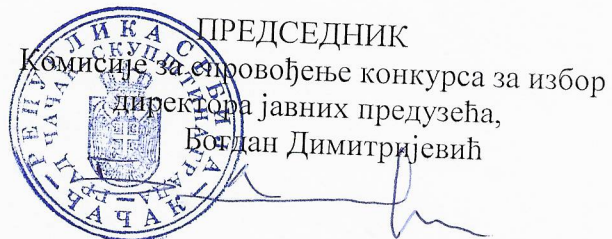 ПРЕДСЕДНИК
Комисије за спровођење конкурса за избор
директора јавних предузећа,
Богдан Димитријевић
РЕПУБЛИКА СРБИЈА
ГРАД ЧАЧАК СКУПШТИНА ГРАДА
ЧАЧАК